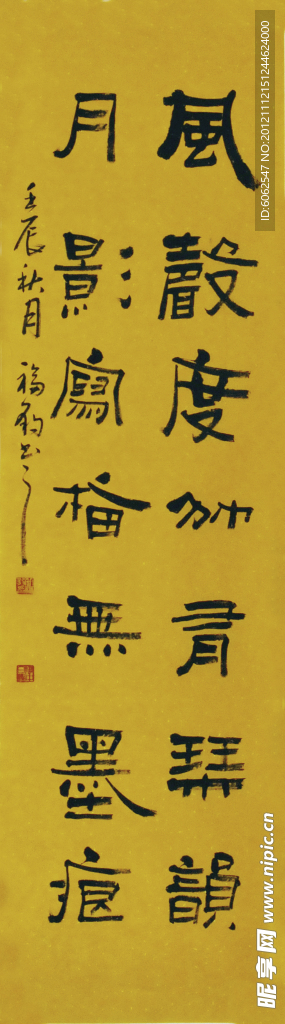 風聲度竹有琴韻
月影寫梅無墨痕
壬辰秋月 福鈞书
ID:6062547 NO:20121112151244624000
昵享网 www.nipic.cn